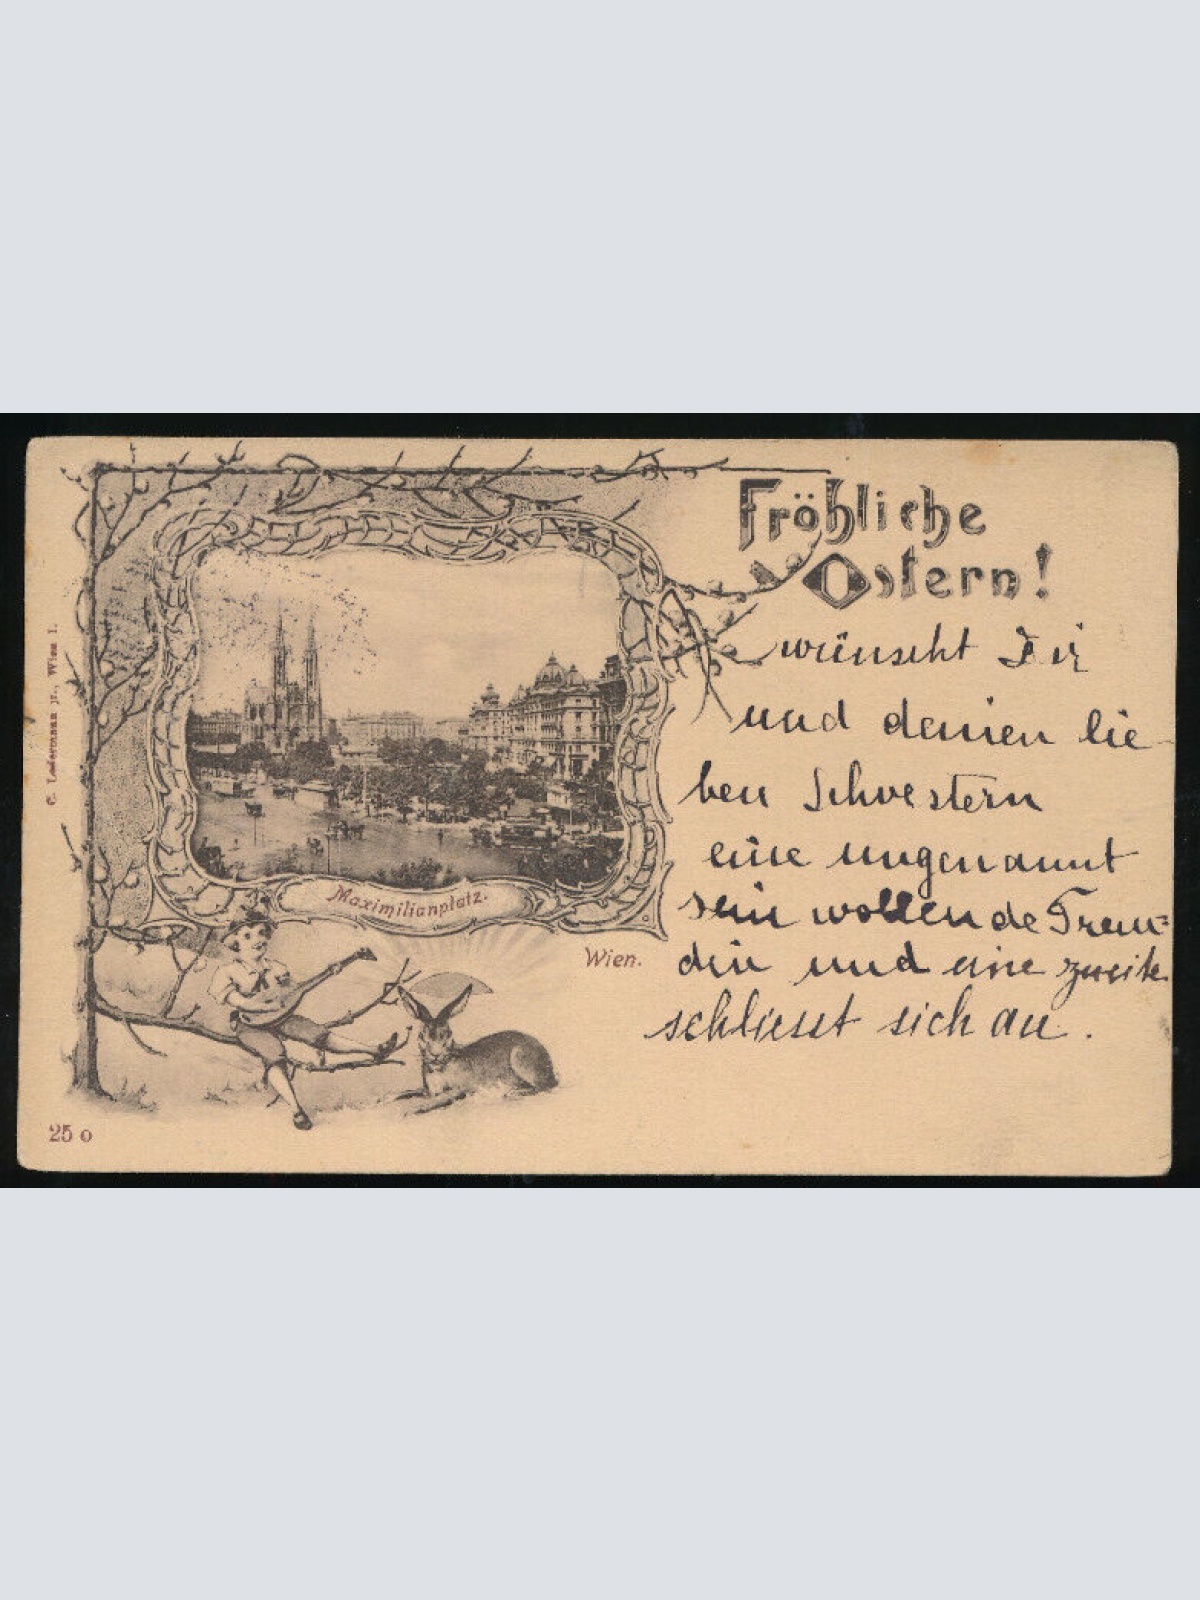 Fröhliche
Ostern!
wünscht Dir
und deinen lie-
ben Schwestern
eine ungenannt
sein wollende Freun=
din und eine zweite
schliesst sich an.
Maximilianplatz.
Wien.
C. Ledermann jr., Wien I.
25 o